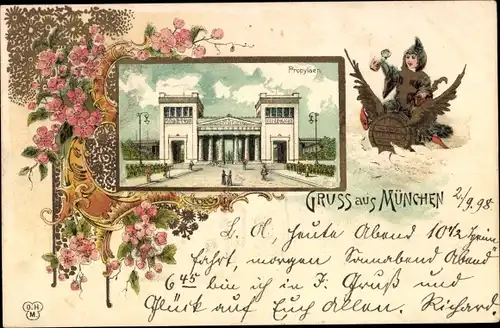 Propylaen
GRUSS aus MÜNCHEN
2/9.98
L. A, heute Abend 10½ Heim
fahrt, morgen Sonnabend Abend
6 45 bin ich in J. Gruß und
Glück auf Euch Allen. Richard.
O.H
M.